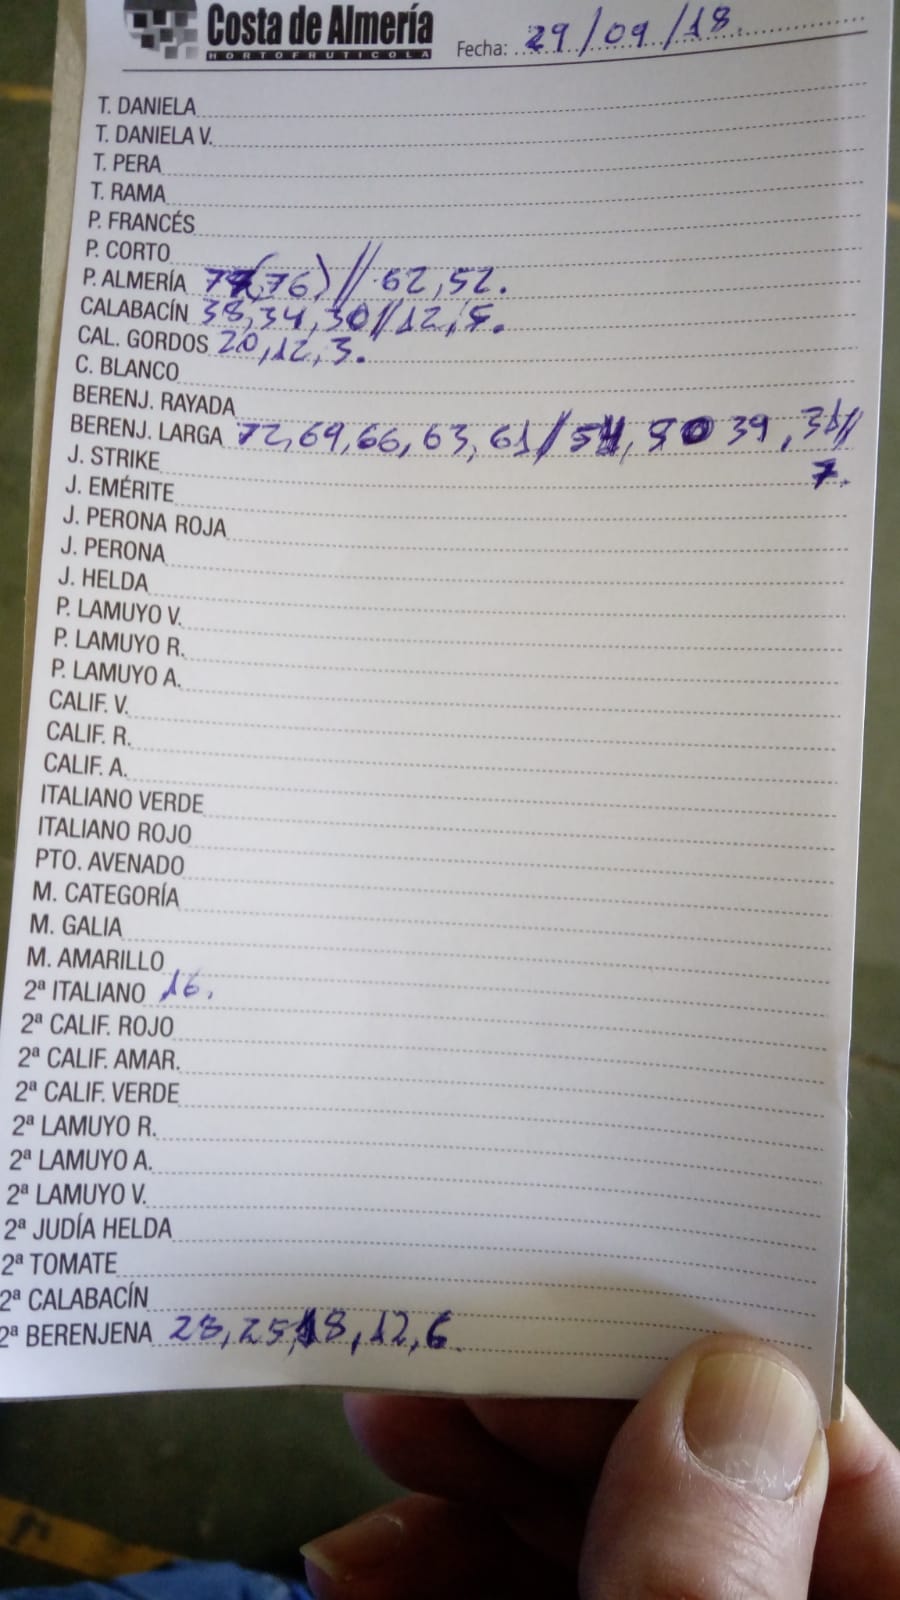 Costa de Almería
HORTOFRUTICOLA
Fecha: 29/09/18.
T. DANIELA
T. DANIELA V.
T. PERA
T. RAMA
P. FRANCÉS
P. CORTO
P. ALMERÍA (76) // 62, 52.
CALABACÍN 38, 34, 30 // 12, 5.
CAL. GORDOS 20, 12, 3.
C. BLANCO
BERENJ. RAYADA
BERENJ. LARGA 72, 69, 66, 63, 61 / 50 39, //
7.
J. STRIKE
J. EMÉRITE
J. PERONA ROJA
J. PERONA
J. HELDA
P. LAMUYO V.
P. LAMUYO R.
P. LAMUYO A.
CALIF. V.
CALIF. R.
CALIF. A.
ITALIANO VERDE
ITALIANO ROJO
PTO. AVENADO
M. CATEGORÍA
M. GALIA
M. AMARILLO
2ª ITALIANO 16.
2ª CALIF. ROJO
2ª CALIF. AMAR.
2ª CALIF. VERDE
2ª LAMUYO R.
2ª LAMUYO A.
2ª LAMUYO V.
2ª JUDÍA HELDA
2ª TOMATE
2ª CALABACÍN
2ª BERENJENA 28, 25, 18, 12, 6.